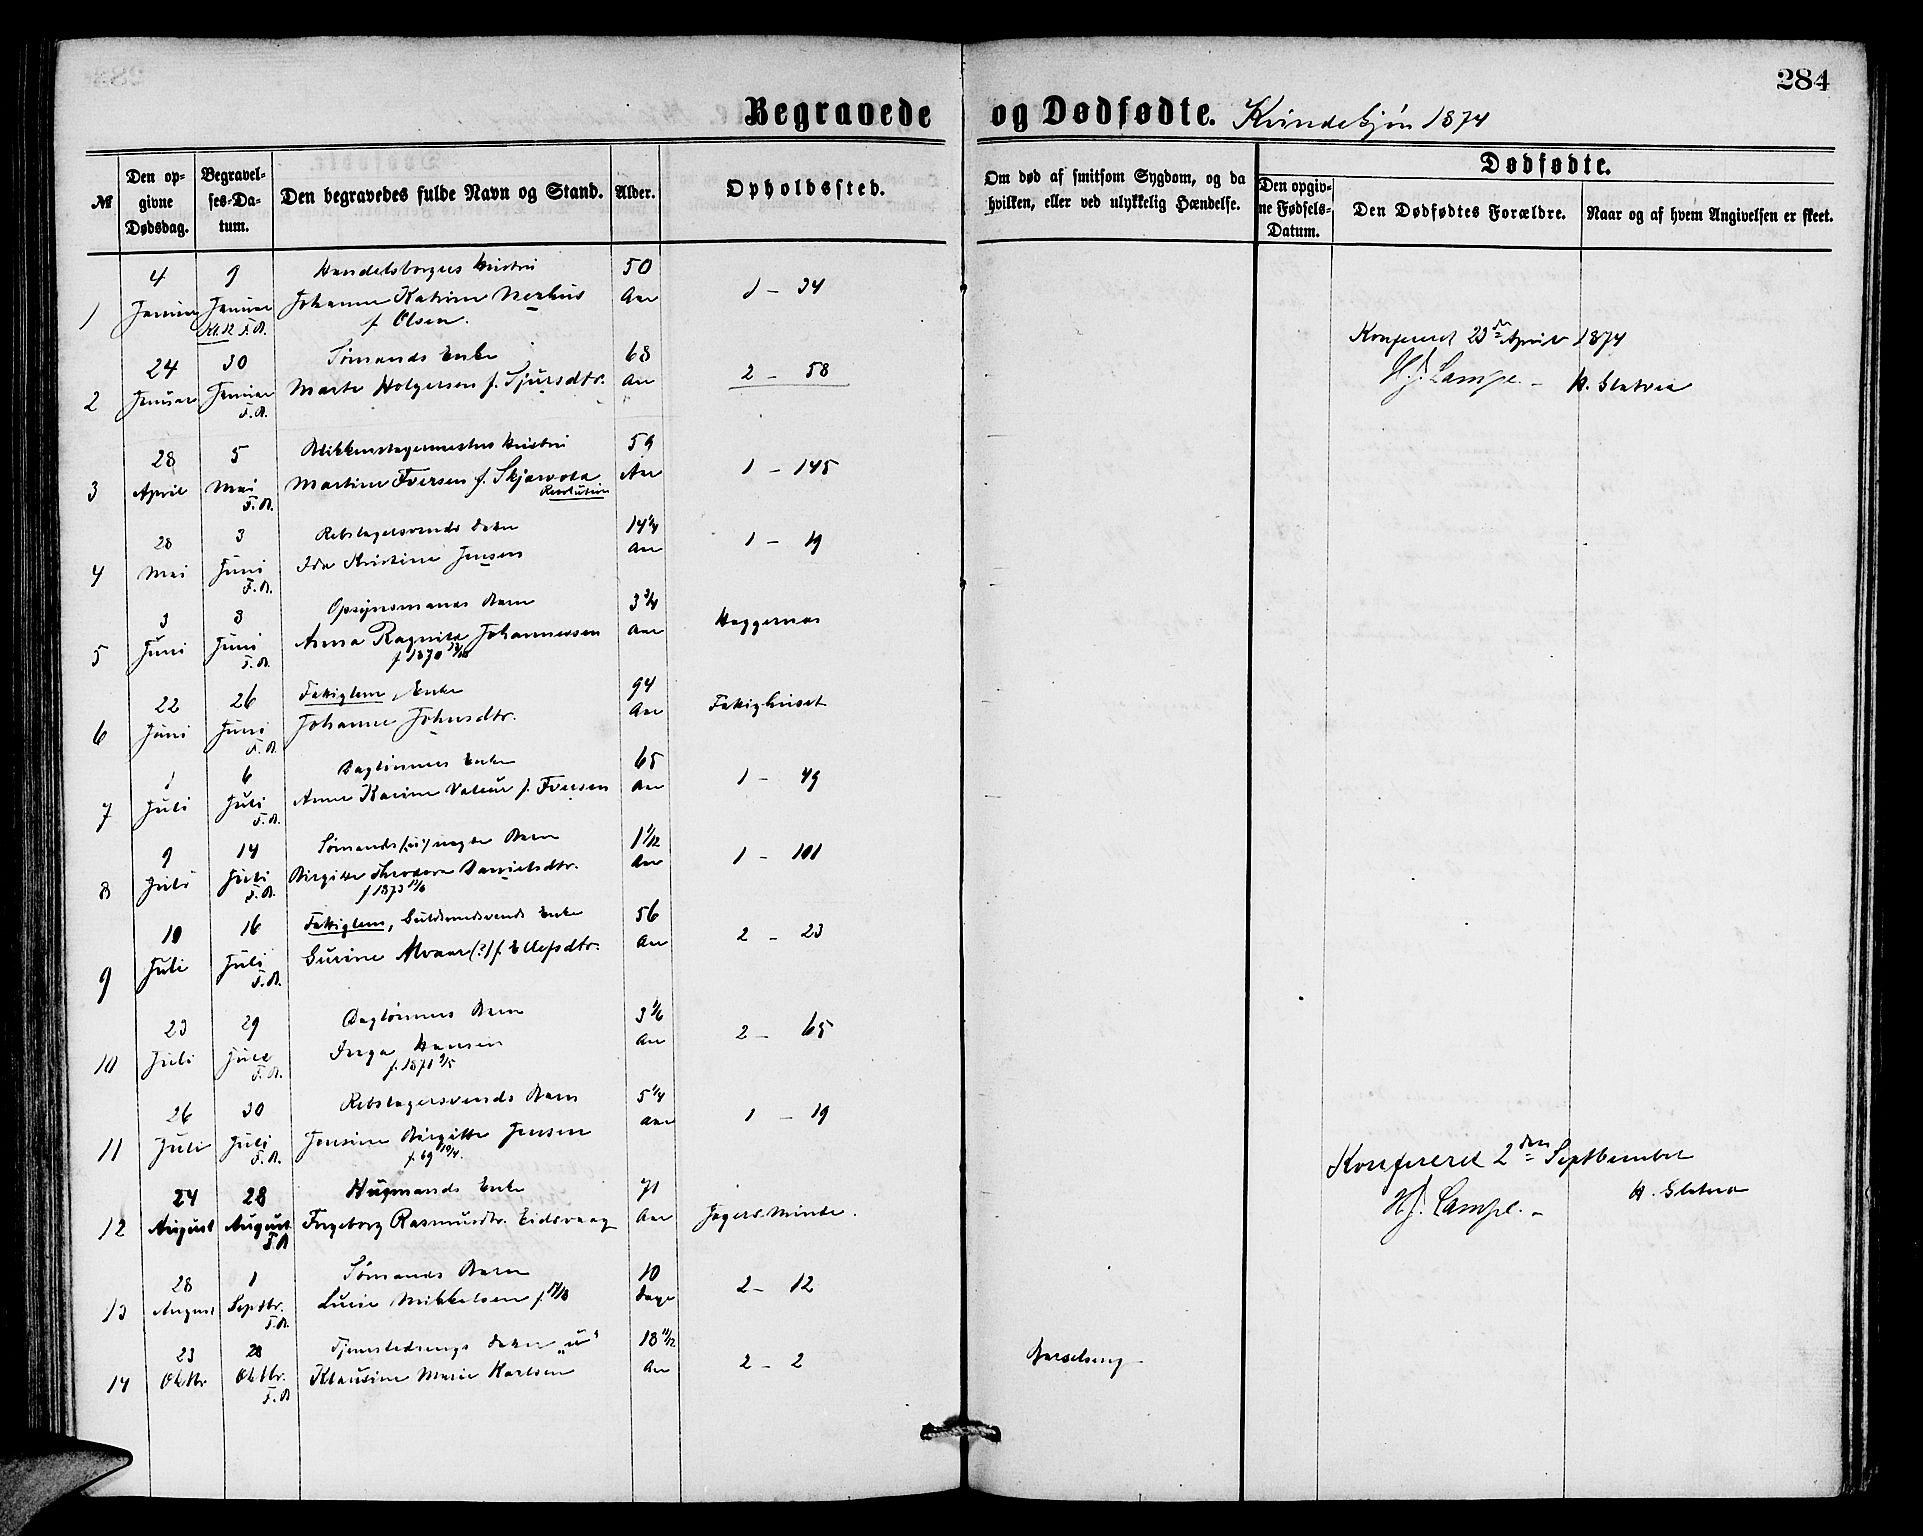 284
Begravede og Dødfødte. Kvindekjøn 1874
№
Den opgivne Dødsdag.
Begravelses-Datum.
Den begravedes fulde Navn og Stand.
Alder.
Opholdssted.
Om død af smitsom Sygdom, og da hvilken, eller ved ulykkelig Hændelse.
Dødfødte.
Den opgivne Fødsels-Datum.
Den Dødfødtes Forældre.
Naar og af hvem Angivelsen er skeet.
4 9 Handelsborgers Hustru 50
1 Januar Januar Johanne Katrine Nerhus Aar 1 - 34
Kl. 12 T.A. f. Olsen.
24 30 Sømands Enke 68
2 Januar Januar Marte Holgersen f. Sjursdtr. Aar 2 - 58
T.A.
Konfereret 23de April 1874
H.J. Lampe. - H. Sletvia
28 5 Blikkenslagermesters Hustru 59
3 April Mai Martine Iversen f. Skjævola Aar 1 - 145
T.A. Revolution
28 3 Rebslagersvends Datter 14 1/4
4 Mai Juni Ida Kristine Jensen Aar 1 - 19
T.A.
3 8 Opsynsmands Barn 3 3/4
5 Juni Juni Anna Ragnila Johannessen Aar Haggernæs
T.A. f 1870
22 26 Fattiglem, Enke 94
6 Juni Juni Johanne Johnsdtr. Aar Fattighuset
T.A.
1 6 Daglønners Enke 65
7 Juli Juli Anne Karine Valeur f. Iversen Aar 1 - 49
T.A.
9 14 Sømands uægte Barn 1 1/12
8 Juli Juli Birgitte Theodora Danielsdtr. Aar 1 - 101
T.A. f 1873
10 16 Fattiglem, Guldsmedsvends Enke 56
9 Juli Juli Gurine Alvaar (?) f. Ellefsdtr. Aar 2 - 23
T.A.
23 29 Daglønners Barn 3 1/6
10 Juli Juli Inga Hansen Aar 2 - 65
T.A. f. 1871
26 30 Rebslagersvends Barn 5 1/4
11 Juli Juli Jensine Birgitte Jensen Aar 1 - 19
T.A. f. 69
Konfereret 2den Septbember
H.J. Lampe. - H. Sletvia
24 28 Husmands Enke 71
12 August August Ingeborg Rasmusdtr. Eidsvaag Aar Jegersminde.
T.A.
28 1 Sømands Barn 10
13 August Septbr. Lucie Mikkelsen f 18/8 Dage 2 - 12
T.A.
23 28 Tjenestedrengs Datter "u" 18 11/12
14 Oktbr Oktbr. Klausine Marie Karlsen Aar 2 - 2 Barselseng
T.A.